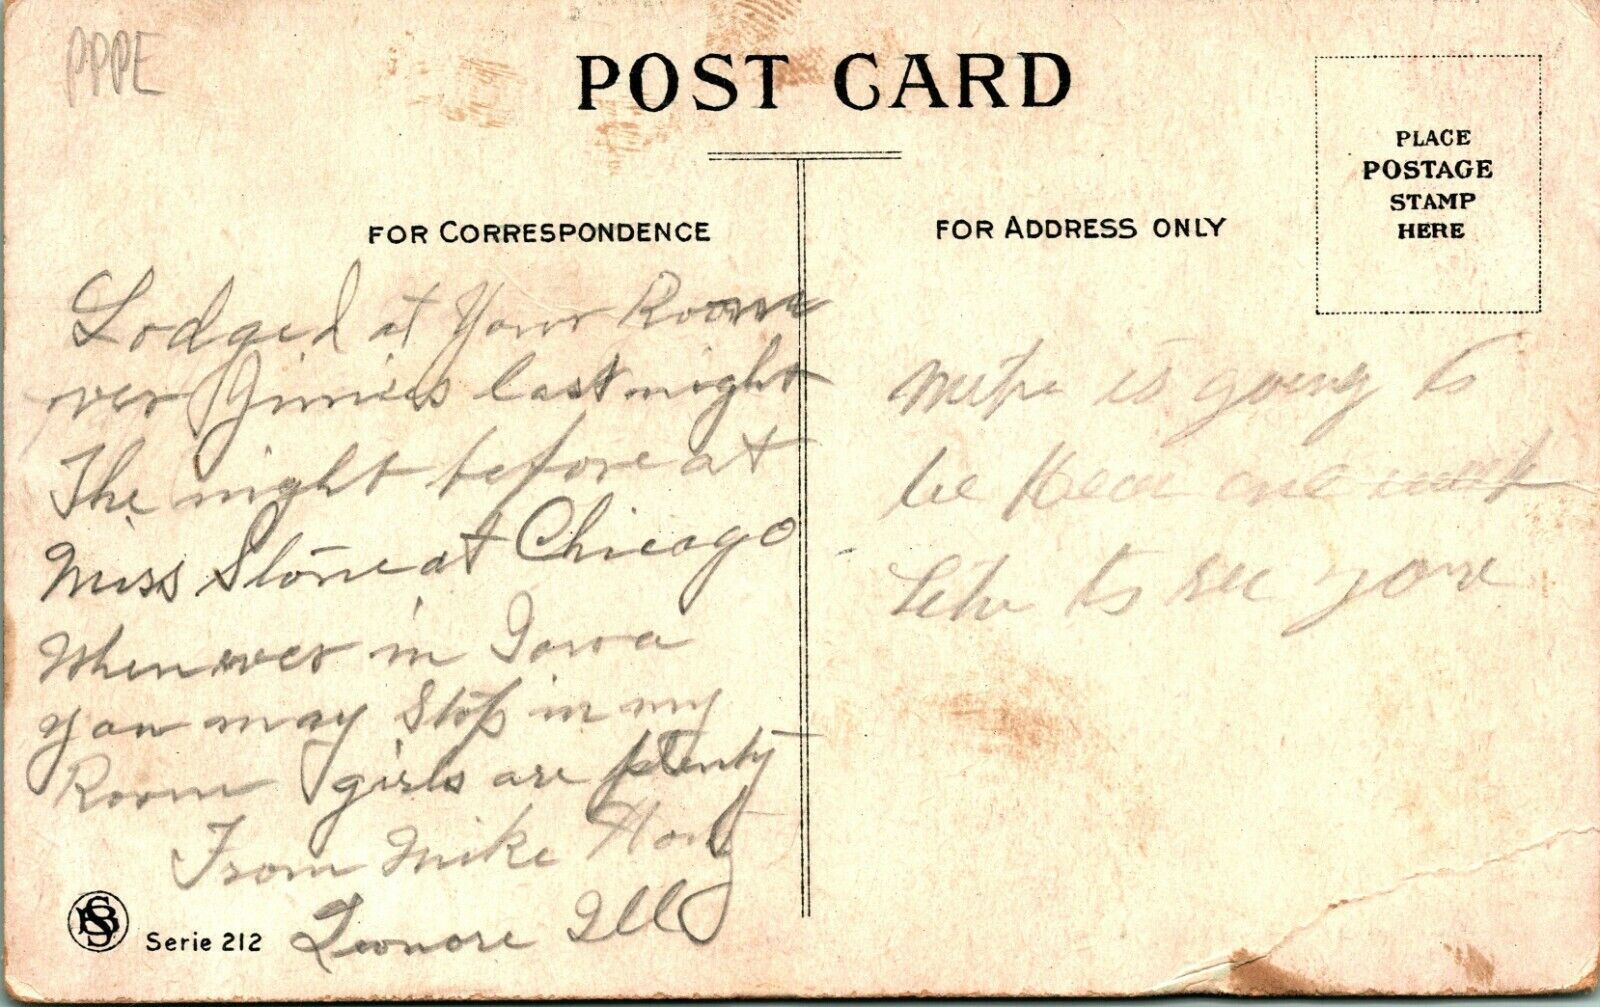 PPPE
POST CARD
FOR CORRESPONDENCE
FOR ADDRESS ONLY
PLACE
POSTAGE
STAMP
HERE
Lodged at Your Room
over Jimies last night
The night before at
Miss Stone at Chicago
When ever in Iowa
you may Stop in my
Room girls are plenty
From Mike
Leonore Ill
Serie 212
is going to
be Hear one week
to see youre